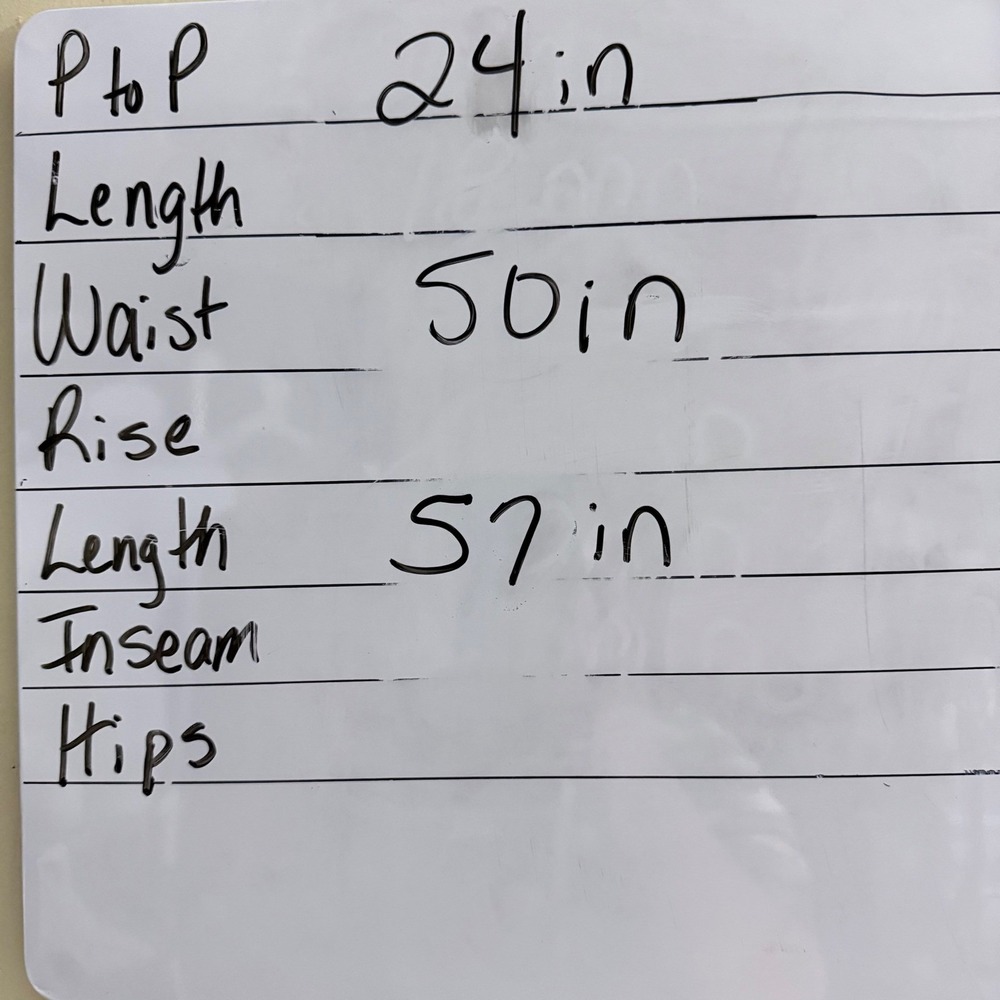 P to P 24 in
Length
Waist 50 in
Rise
Length 57 in
Inseam
Hips